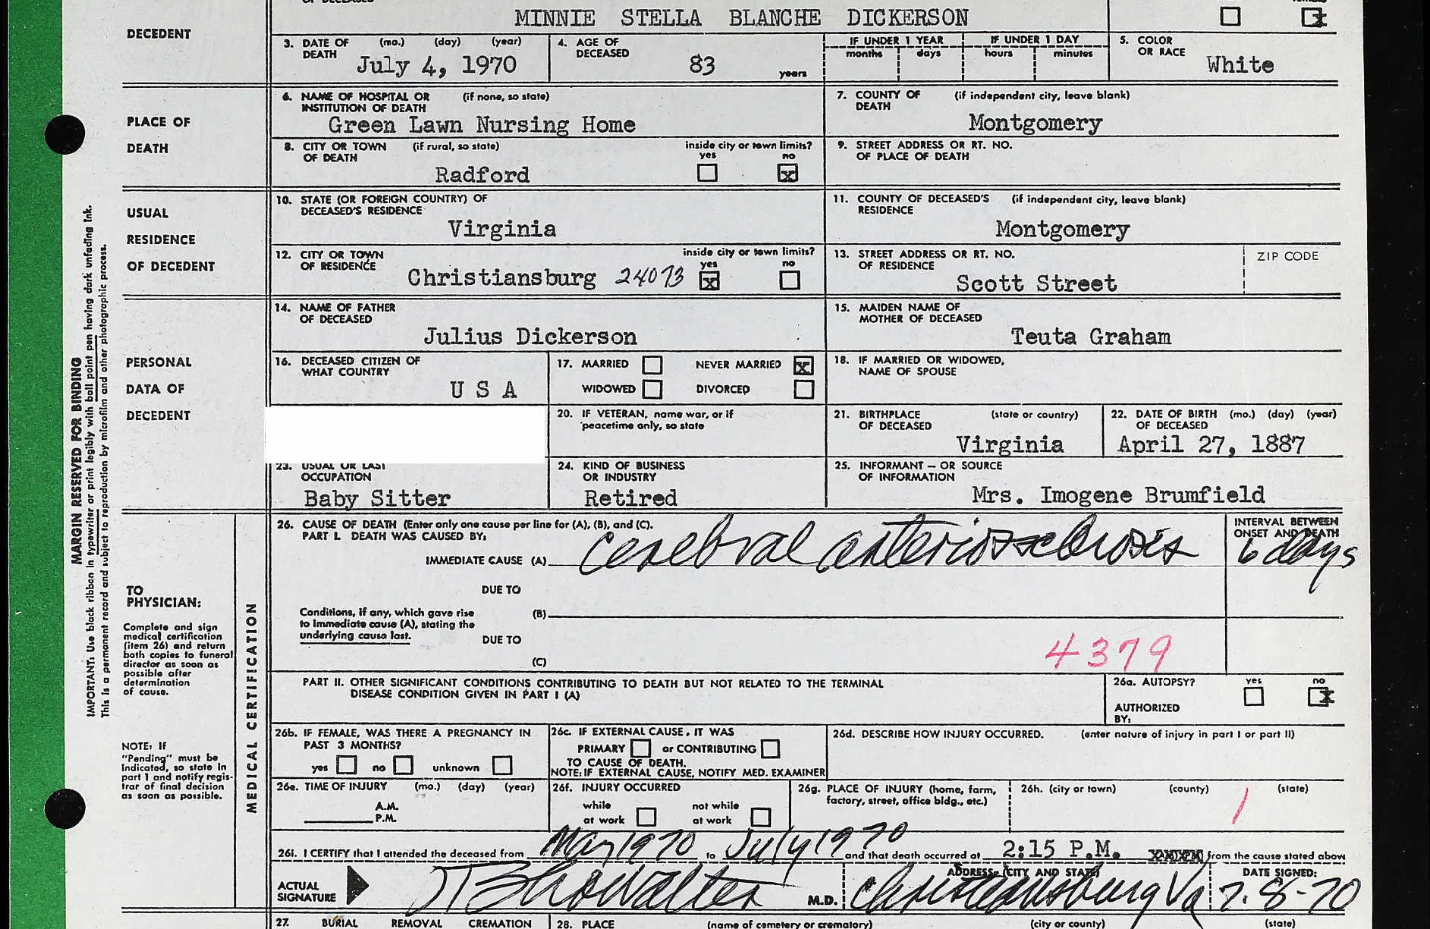 MINNIE STELLA BLANCHE DICKERSON
DECEDENT
3. DATE OF DEATH (mo.) (day) (year)
July 4, 1970
4. AGE OF DECEASED
83 years
IF UNDER 1 YEAR
months days
IF UNDER 1 DAY
hours minutes
5. COLOR OR RACE
White
PLACE OF DEATH
6. NAME OF HOSPITAL OR INSTITUTION OF DEATH (if none, so state)
Green Lawn Nursing Home
7. COUNTY OF DEATH (if independent city, leave blank)
Montgomery
8. CITY OR TOWN OF DEATH (if rural, so state)
Radford
inside city or town limits?
yes no
x
9. STREET ADDRESS OR RT. NO. OF PLACE OF DEATH
USUAL RESIDENCE OF DECEDENT
10. STATE (OR FOREIGN COUNTRY) OF DECEASED'S RESIDENCE
Virginia
11. COUNTY OF DECEASED'S RESIDENCE (if independent city, leave blank)
Montgomery
12. CITY OR TOWN OF RESIDENCE
Christiansburg 24073
inside city or town limits?
yes no
x
13. STREET ADDRESS OR RT. NO. OF RESIDENCE
Scott Street
ZIP CODE
PERSONAL DATA OF DECEDENT
14. NAME OF FATHER OF DECEASED
Julius Dickerson
15. MAIDEN NAME OF MOTHER OF DECEASED
Teuta Graham
16. DECEASED CITIZEN OF WHAT COUNTRY
U S A
17. MARRIED NEVER MARRIED x
WIDOWED DIVORCED
18. IF MARRIED OR WIDOWED, NAME OF SPOUSE
20. IF VETERAN, name war, or if peacetime only, so state
21. BIRTHPLACE OF DECEASED (state or country)
Virginia
22. DATE OF BIRTH (mo.) (day) (year) OF DECEASED
April 27, 1887
23. USUAL OR LAST OCCUPATION
Baby Sitter
24. KIND OF BUSINESS OR INDUSTRY
Retired
25. INFORMANT — OR SOURCE OF INFORMATION
Mrs. Imogene Brumfield
MARGIN RESERVED FOR BINDING
IMPORTANT: Use black ribbon in typewriter or print legibly with ball point pen having dark unfading ink.
This is a permanent record and subject to reproduction by microfilm and other photographic process.
TO PHYSICIAN:
Complete and sign medical certification (item 26) and return both copies to funeral director as soon as possible after determination of cause.
NOTE: If "Pending" must be indicated, so state in part 1 and notify registrar of final decision as soon as possible.
MEDICAL CERTIFICATION
26. CAUSE OF DEATH (Enter only one cause per line for (A), (B), and (C).
PART I. DEATH WAS CAUSED BY:
IMMEDIATE CAUSE (A)
cerebral arteriosclerosis
INTERVAL BETWEEN ONSET AND DEATH
6 days
DUE TO
Conditions, if any, which gave rise to immediate cause (A), stating the underlying cause last.
(B)
DUE TO
(C)
4379
PART II. OTHER SIGNIFICANT CONDITIONS CONTRIBUTING TO DEATH BUT NOT RELATED TO THE TERMINAL DISEASE CONDITION GIVEN IN PART I (A)
26a. AUTOPSY? yes no x
AUTHORIZED BY:
26b. IF FEMALE, WAS THERE A PREGNANCY IN PAST 3 MONTHS?
yes no unknown
26c. IF EXTERNAL CAUSE, IT WAS
PRIMARY or CONTRIBUTING
TO CAUSE OF DEATH.
NOTE: IF EXTERNAL CAUSE, NOTIFY MED. EXAMINER
26d. DESCRIBE HOW INJURY OCCURRED. (enter nature of injury in part I or part II)
26e. TIME OF INJURY (mo.) (day) (year)
A.M.
P.M.
26f. INJURY OCCURRED
while at work not while at work
26g. PLACE OF INJURY (home, farm, factory, street, office bldg., etc.)
26h. (city or town) (county) (state)
1
26i. I CERTIFY that I attended the deceased from May 1970 to July 1970 and that death occurred at 2:15 P.M. from the cause stated above
ACTUAL SIGNATURE
Showalter M.D.
ADDRESS: (CITY AND STATE)
Christiansburg Va
DATE SIGNED:
7-8-70
27. BURIAL REMOVAL CREMATION
28. PLACE (name of cemetery or crematory) (city or county) (state)